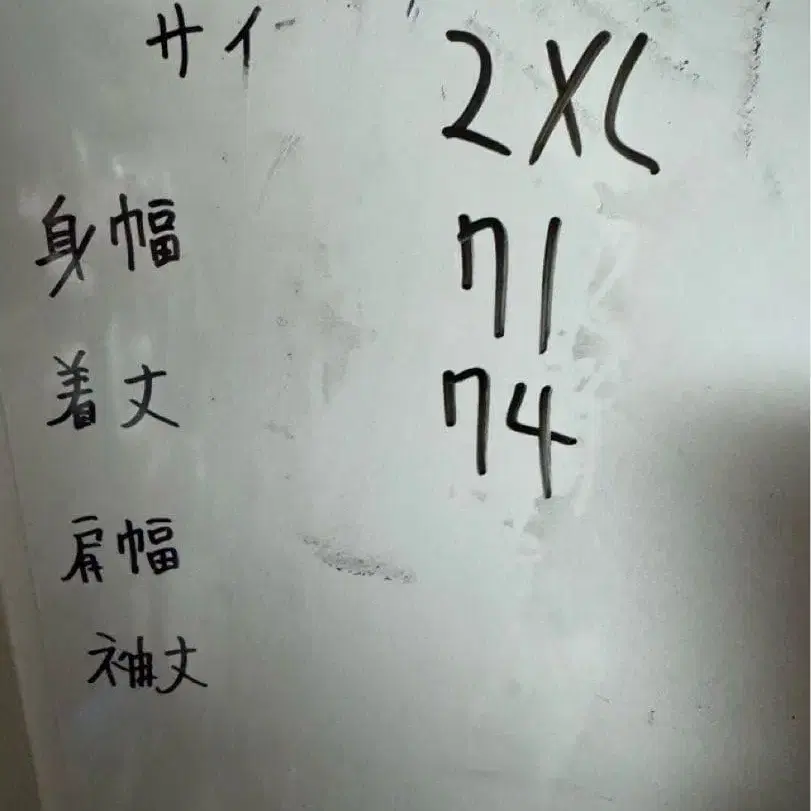 サイ 2XL
身幅 71
着丈 74
肩幅
袖丈